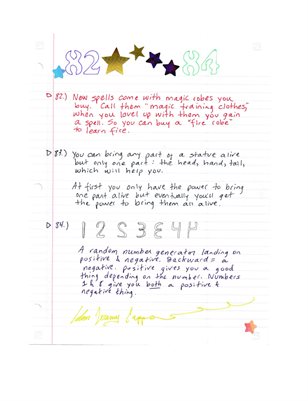 82 84
82.) Now spells come with magic robes you
buy. Call them "magic training clothes,"
when you level up with them you gain
a spell. So you can buy a "fire robe"
to learn fire.
83.) You can bring any part of a statue alive
but only one part: the head, hand, tail,
which will help you.
At first you only have the power to bring
one part alive but eventually you'll get
the power to bring them all alive.
84.)
1 2 S 3 E 4
A random number generator landing on
positive & negative. Backward = a
negative. positive gives you a good
thing depending on the number. Numbers
1 & 8 give you both a positive &
negative thing.